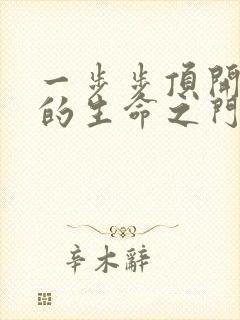 一步步頂開
的生命之門
辛木辭